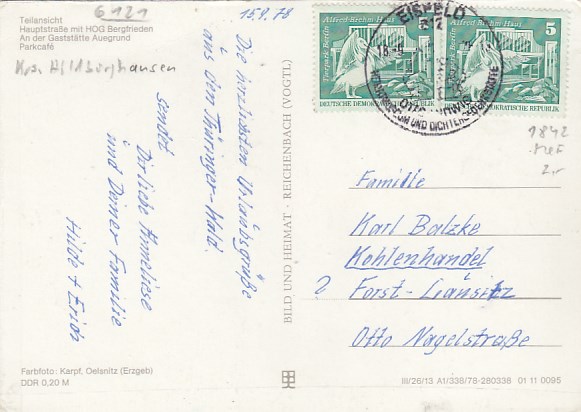 Teilansicht
Hauptstraße mit HOG Bergfrieden
An der Gaststätte Auegrund
Parkcafé
6121
Krs. Hildburghausen
15.9.78
Die herzlichsten Urlaubsgrüße
aus dem Thüringer-Wald.
sendet
Dir liebe Anneliese
und Deiner Familie
Hilde + Erich
BILD UND HEIMAT · REICHENBACH (VOGTL)
Farbfoto: Karpf, Oelsnitz (Erzgeb)
DDR 0,20 M
EISFELD
Tierpark Berlin Alfred-Brehm-Haus
DEUTSCHE DEMOKRATISCHE REPUBLIK
Tierpark Berlin Alfred-Brehm-Haus 5
DEMOKRATISCHE REPUBLIK
OTTO LUDWIG
1842
2,-
Familie
Karl Balzke
Kohlenhandel
? Forst-Lausitz
Otto Nagelstraße
III/26/13 A1/338/78-280338 01 11 0095